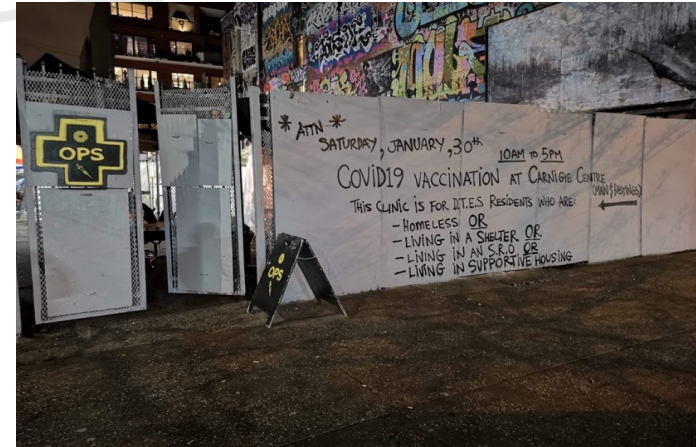 OPS
* ATTN *
SATURDAY, JANUARY, 30th
10AM TO 5PM
COVID19 VACCINATION AT CARNIGIE CENTRE
(MAIN & HASTINGS)
THIS CLINIC IS FOR D.T.E.S RESIDENTS WHO ARE:
- HOMELESS OR
- LIVING IN A SHELTER OR
- LIVING IN AN S.R.O OR
- LIVING IN SUPPORTIVE HOUSING
OPS